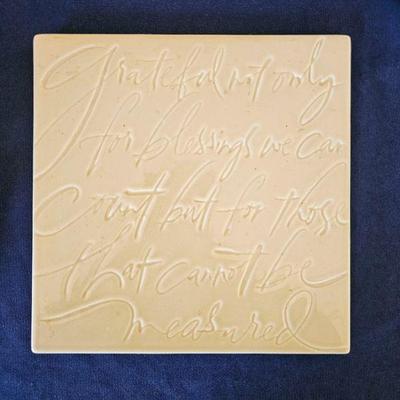 Grateful not only
for blessings we can
count but for those
that cannot be
measured